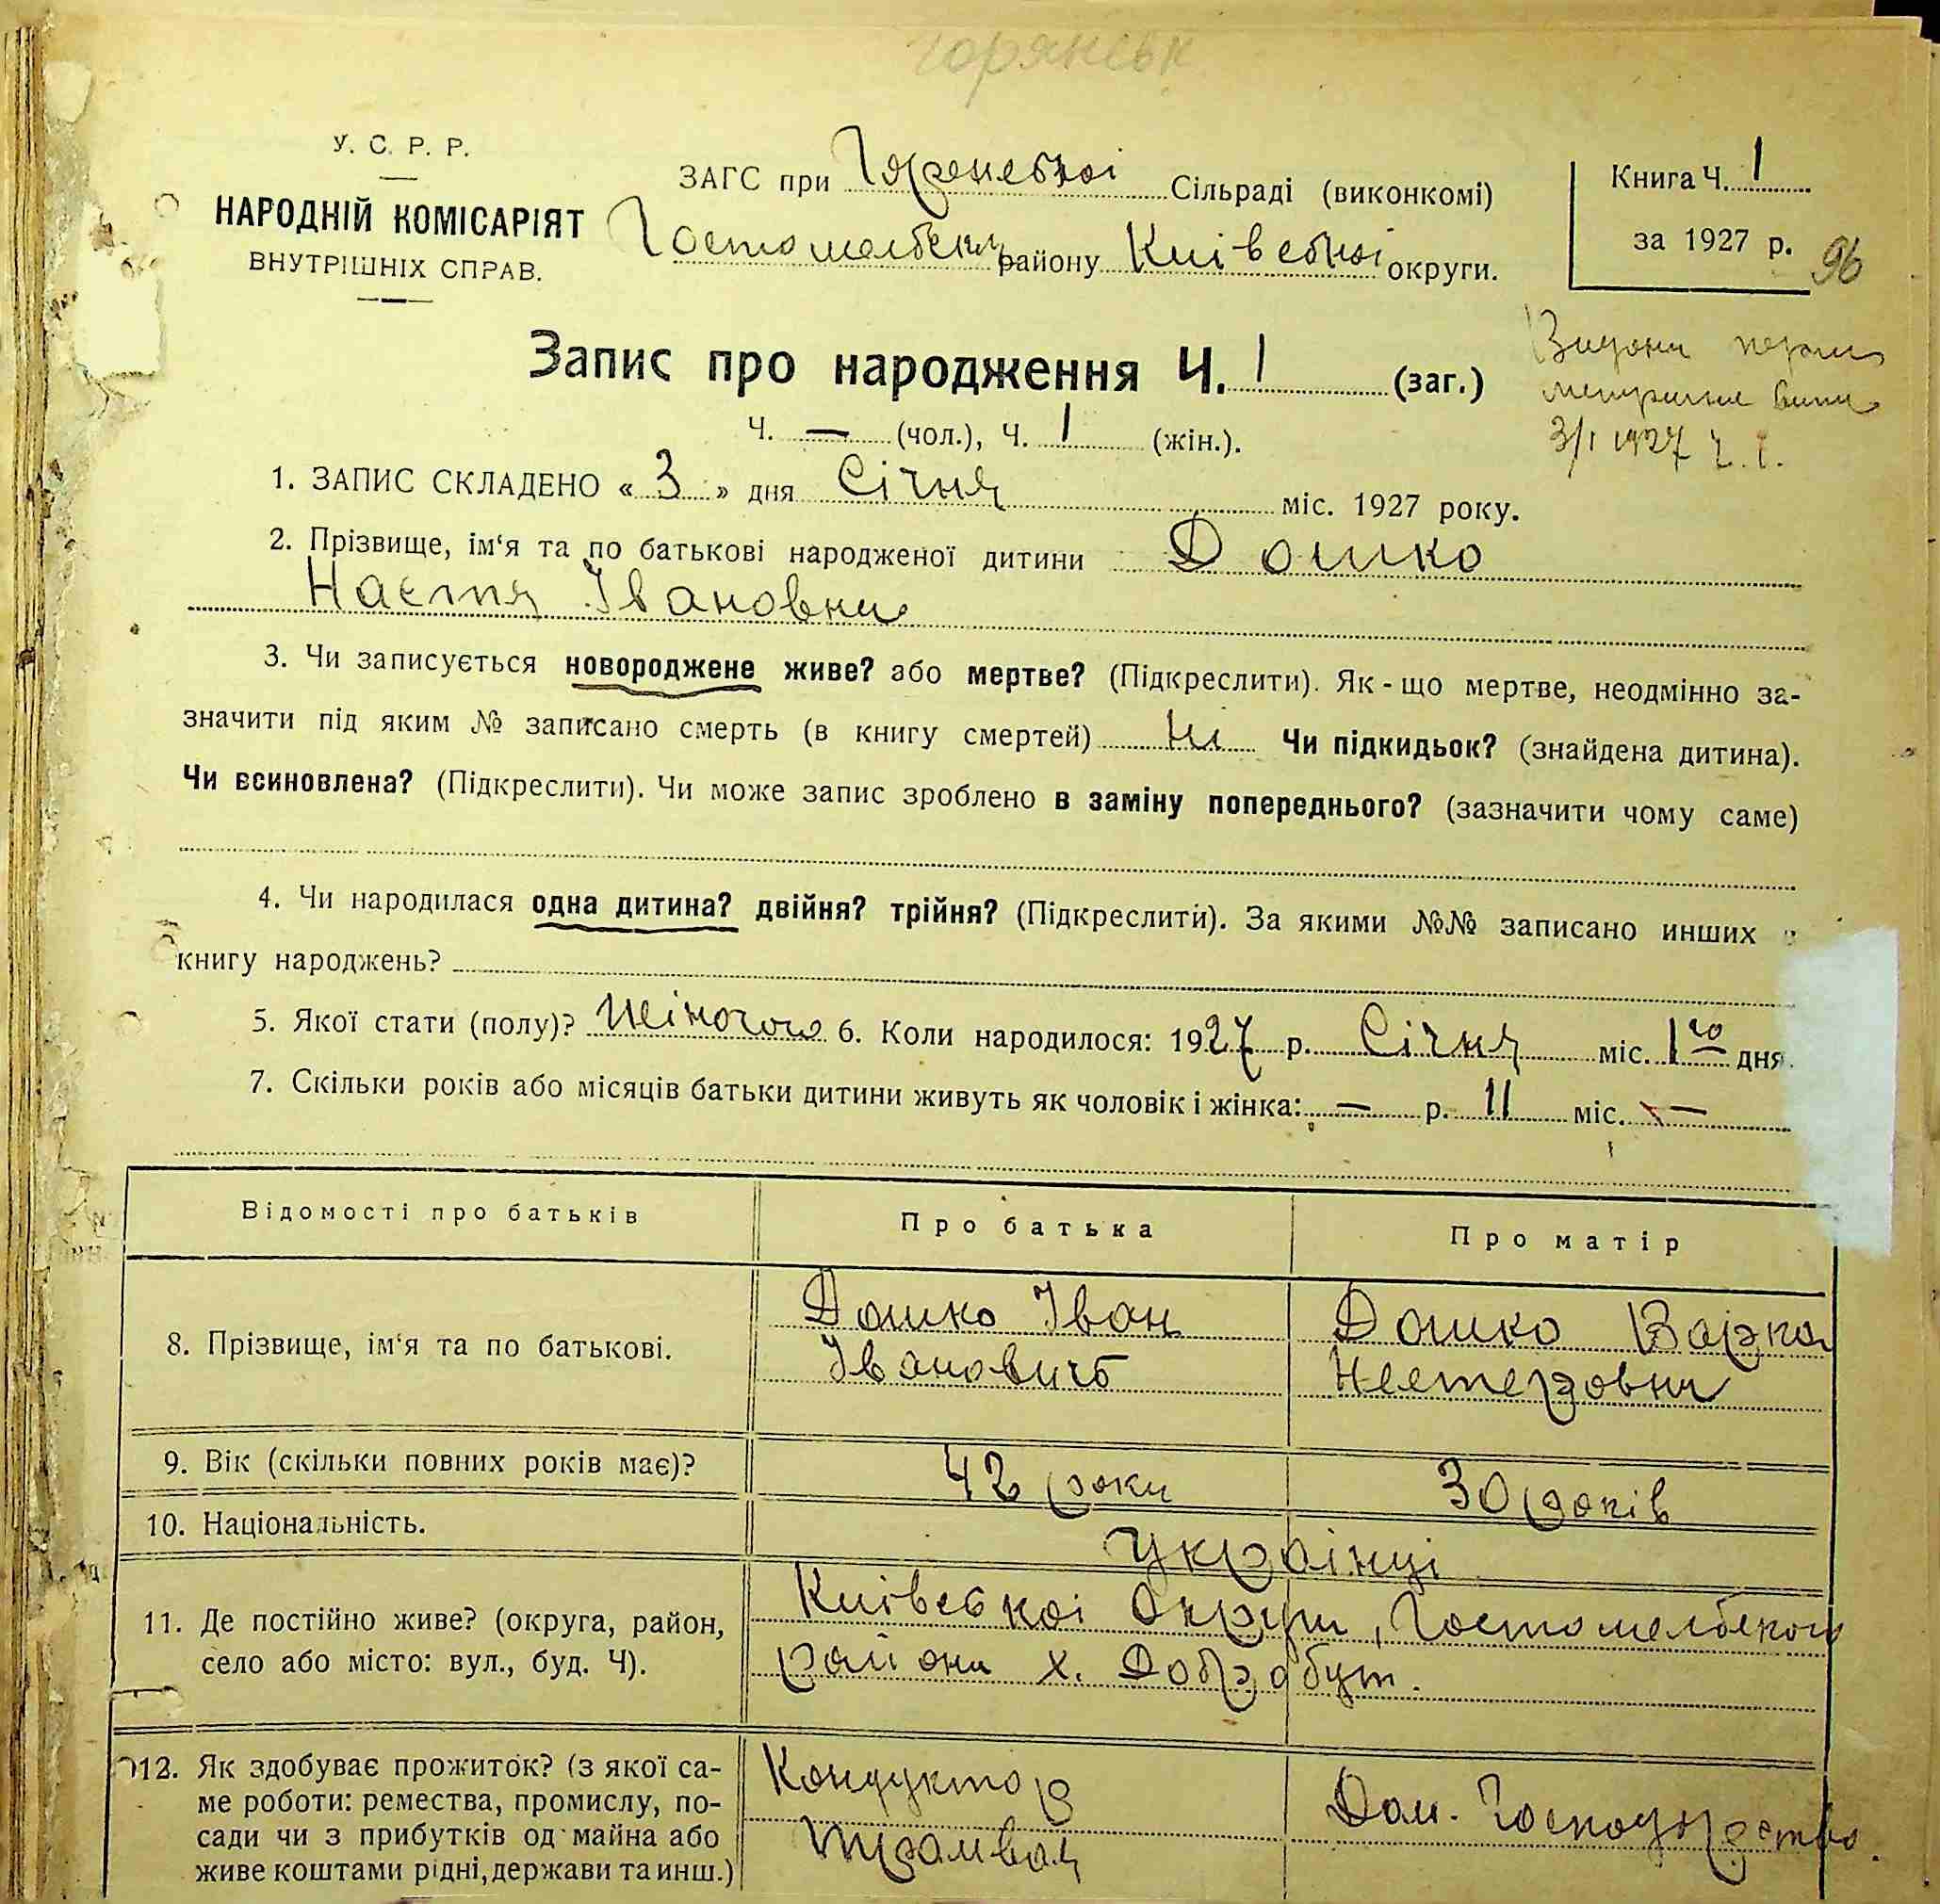 горянськ
У. С. Р. Р.
НАРОДНІЙ КОМІСАРІЯТ
ВНУТРІШНІХ СПРАВ.
ЗАГС при Сільраді (виконкомі)
Гостомельськ району Київської округи.
Книга Ч. 1
за 1927 р.
96
Запис про народження Ч. 1 (заг.)
Ч. — (чол.), Ч. 1 (жін.).
3/I 1927
1. ЗАПИС СКЛАДЕНО « 3 » дня Січня міс. 1927 року.
2. Прізвище, ім‘я та по батькові народженої дитини Дошко
Настя Івановна
3. Чи записується новороджене живе? або мертве? (Підкреслити). Як-що мертве, неодмінно за-
значити під яким № записано смерть (в книгу смертей) Ні Чи підкидьок? (знайдена дитина).
Чи всиновлена? (Підкреслити). Чи може запис зроблено в заміну попереднього? (зазначити чому саме)
4. Чи народилася одна дитина? двійня? трійня? (Підкреслити). За якими №№ записано инших в
книгу народжень?
5. Якої стати (полу)? Жіночої 6. Коли народилося: 1927 р. Січня міс. 1го дня.
7. Скільки років або місяців батьки дитини живуть як чоловік і жінка: — р. 11 міс. —
Відомості про батьків Про батька Про матір
8. Прізвище, ім‘я та по батькові.
Дошко Іван
Івановичь
Дошко Варка
Нестеровна
9. Вік (скільки повних років має)? 42 роки 30 років
10. Національність. Українці
11. Де постійно живе? (округа, район,
село або місто: вул., буд. Ч).
Київської Округи, Гостомельського
района х. Добрабут.
12. Як здобуває прожиток? (з якої са-
ме роботи: ремества, промислу, по-
сади чи з прибутків од майна або
живе коштами рідні, держави та инш.)
Кондуктор
трамвая
Дом. Господарство.